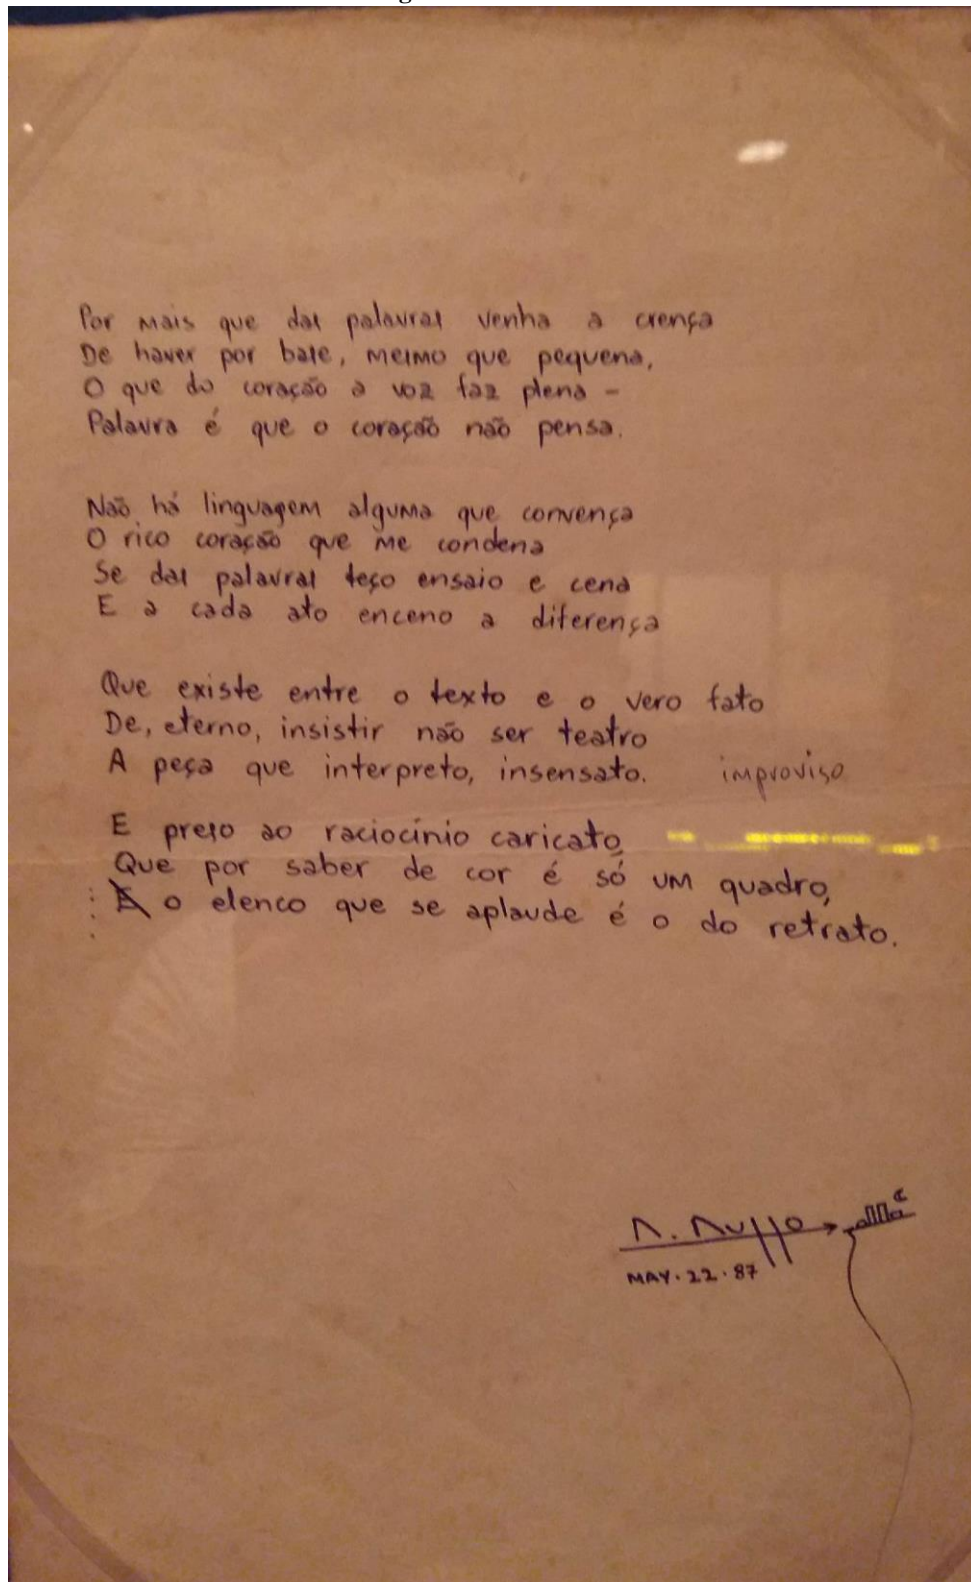 Por mais que das palavras venha a crença
De haver por base, mesmo que pequena,
O que do coração a voz faz plena –
Palavra é que o coração não pensa.
Não há linguagem alguma que convença
O rico coração que me condena
Se das palavras teço ensaio e cena
E a cada ato enceno a diferença
Que existe entre o texto e o vero fato
De, eterno, insistir não ser teatro
A peça que interpreto, insensato. improviso
E preso ao raciocínio caricato,
Que por saber de cor é só um quadro,
E o elenco que se aplaude é o do retrato.
MAY.22.87